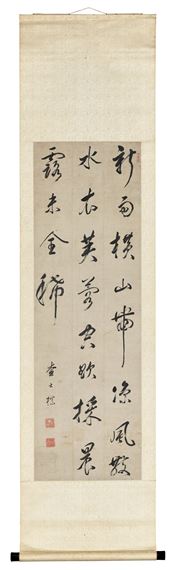 新雨横山帶涼風散
水衣芙蓉欲採晨
露未全稀
查士標